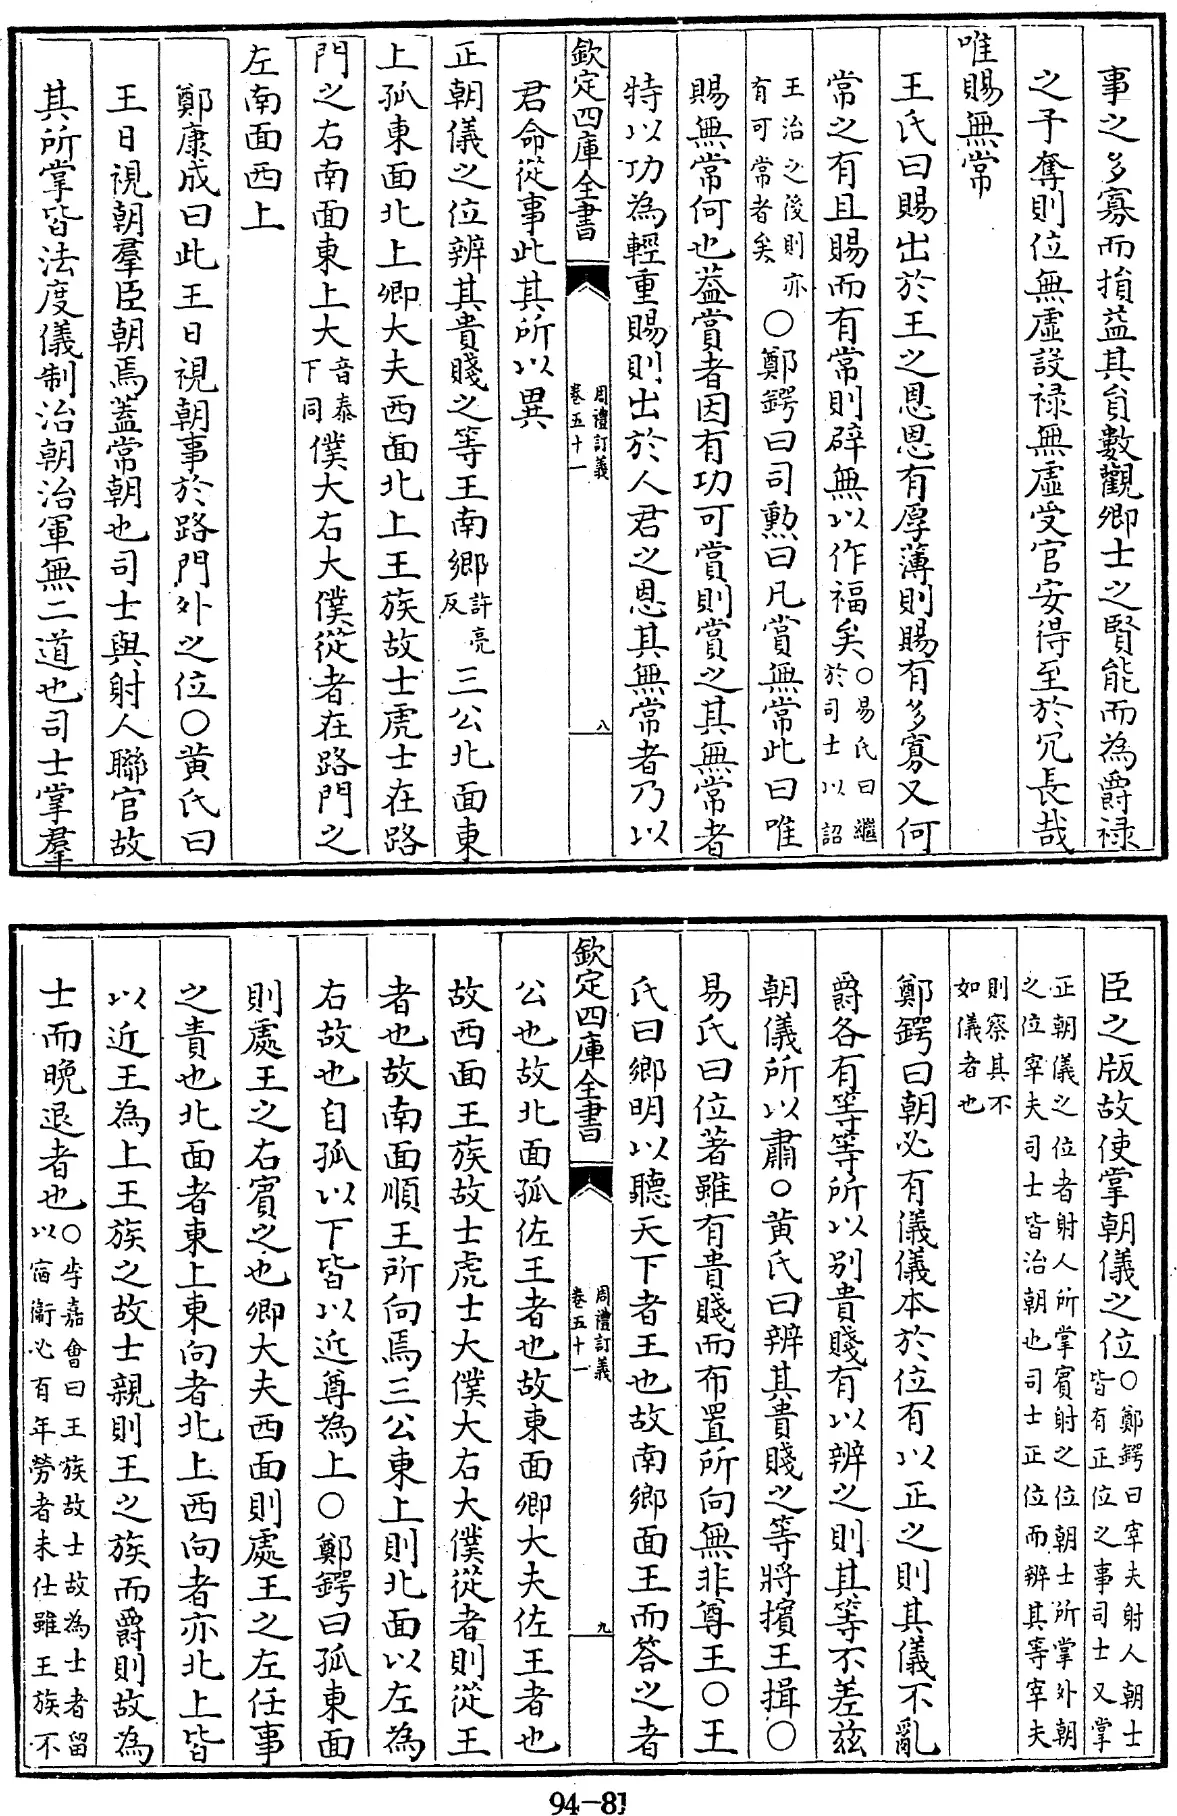 事之多寡而損益其員數觀卿士之賢能而為爵禄
之予奪則位無虛設禄無虛受官安得至於冗長哉
唯賜無常
王氏曰賜出於王之恩恩有厚薄則賜有多寡又何
常之有且賜而有常則辟無以作福矣○易氏曰繼於司士以詔
王治之後則亦有可常者矣○鄭鍔曰司勲曰凡賞無常此曰唯
賜無常何也葢賞者因有功可賞則賞之其無常者
特以功為輕重賜則出於人君之恩其無常者乃以
欽定四庫全書 周禮訂義卷五十一 八
君命從事此其所以異
正朝儀之位辨其貴賤之等王南鄉許亮反三公北面東
上孤東面北上卿大夫西面北上王族故士虎士在路
門之右南面東上大音泰下同僕大右大僕從者在路門之
左南面西上
鄭康成曰此王日視朝事於路門外之位○黄氏曰
王日視朝羣臣朝焉蓋常朝也司士與射人聯官故
其所掌皆法度儀制治朝治軍無二道也司士掌羣
臣之版故使掌朝儀之位○鄭鍔曰宰夫射人朝士皆有正位之事司士又掌
正朝儀之位者射人所掌賓射之位朝士所掌外朝之位宰夫司士皆治朝也司士正位而辨其等宰夫
則察其不如儀者也
鄭鍔曰朝必有儀儀本於位有以正之則其儀不亂
爵各有等等所以别貴賤有以辨之則其等不差兹
朝儀所以肅○黄氏曰辨其貴賤之等將擯王揖○
易氏曰位著雖有貴賤而布置所向無非尊王○王
氏曰鄉明以聽天下者王也故南鄉面王而答之者
欽定四庫全書 周禮訂義卷五十一 九
公也故北面孤佐王者也故東面卿大夫佐王者也
故西面王族故士虎士大僕大右大僕從者則從王
者也故南面順王所向焉三公東上則北面以左為
右故也自孤以下皆以近尊為上○鄭鍔曰孤東面
則處王之右賓之也卿大夫西面則處王之左任事
之責也北面者東上東向者北上西向者亦北上皆
以近王為上王族之故士親則王之族而爵則故為
士而晚退者也○李嘉會曰王族故士故為士者留以宿衞必百年勞者未仕雖王族不
94-81